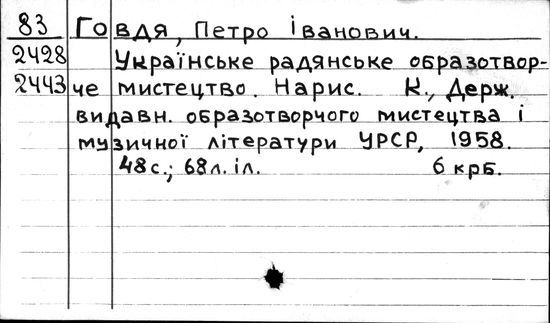 83 Говдя, Петро Іванович.
2428 Українське радянське образотвор-
2443 че мистецтво. Нарис. К., Держ.
видавн. образотворчого мистецтва і
музичної літератури УРСР, 1958.
48 с.; 68 л. іл. 6 крб.